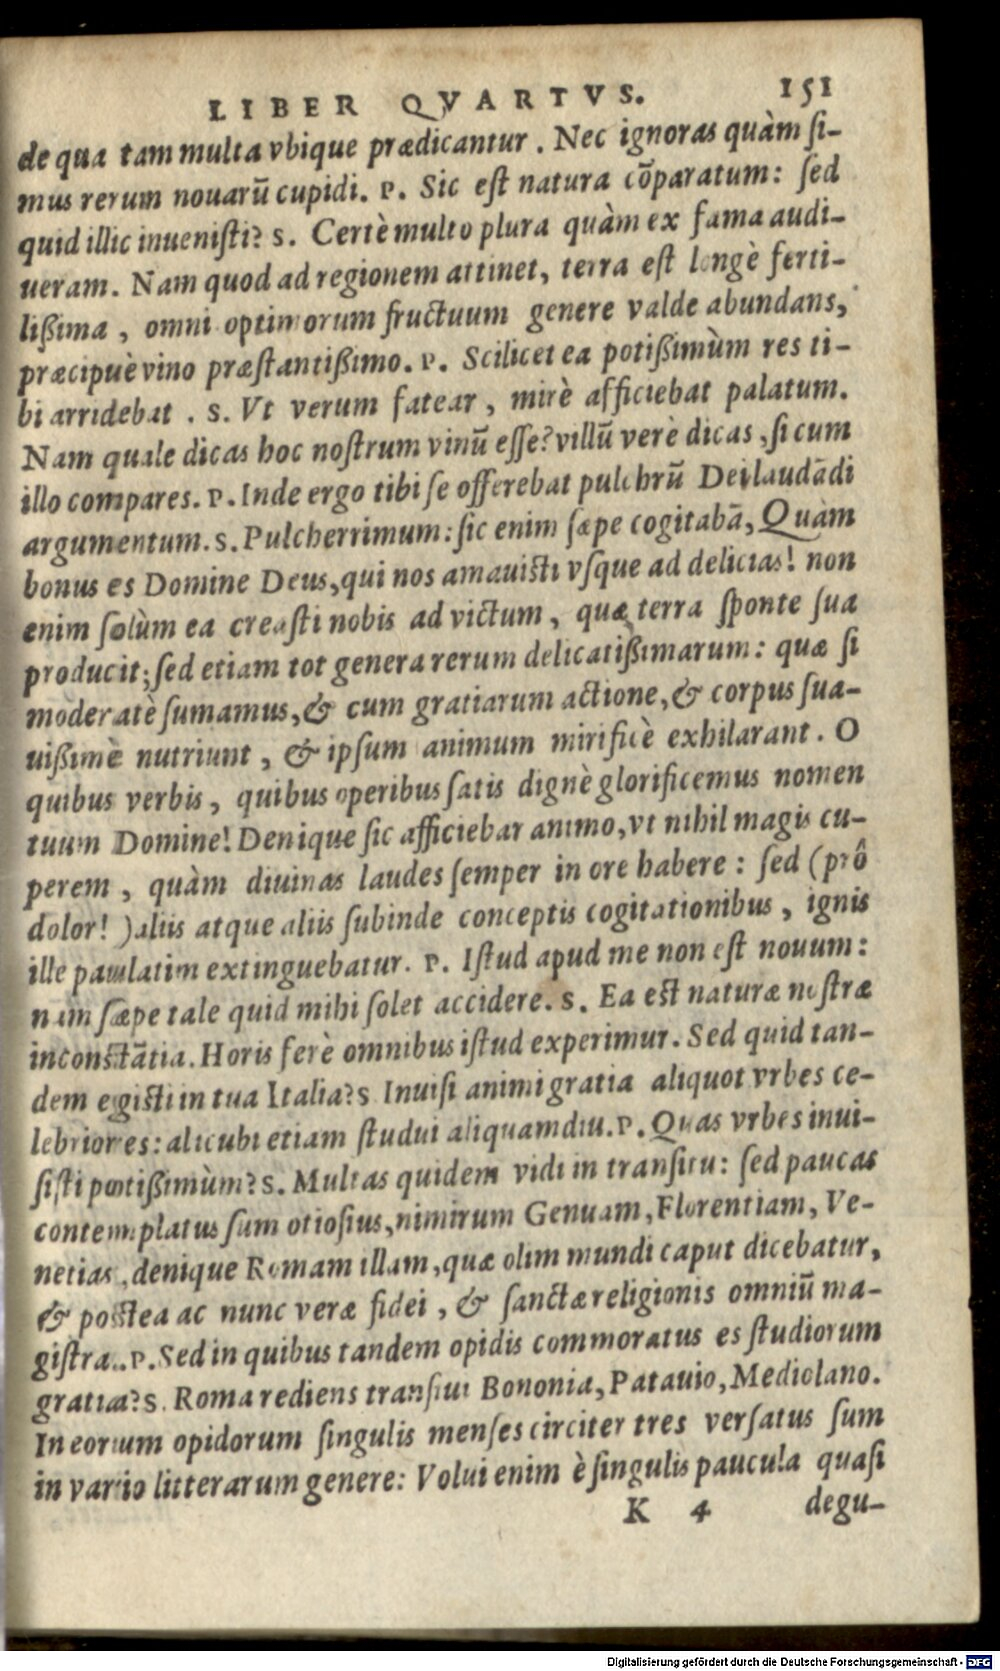 LIBER QVARTVS. 151
de qua tam multa vbique prædicantur . Nec ignoras quàm ſi-
mus rerum nouarũ cupidi. P. Sic eſt natura cõparatum: ſed
quid illic inueniſti? S. Certè multo plura quàm ex fama audi-
ueram. Nam quod ad regionem attinet, terra eſt longè ferti-
lißima , omni optimorum fructuum genere valde abundans,
præcipuè vino præſtantißimo. P. Scilicet ea potißimùm res ti-
bi arridebat . S. Vt verum fatear , mirè afficiebat palatum.
Nam quale dicas hoc noſtrum vinũ eſſe? villũ verè dicas , ſi cum
illo compares. P. Inde ergo tibi ſe offerebat pulchrũ Dei laudãdi
argumentum. S. Pulcherrimum: ſic enim ſæpe cogitabã, Quàm
bonus es Domine Deus, qui nos amauiſti vſque ad delicias! non
enim ſolùm ea creaſti nobis ad victum , quæ terra ſponte ſua
producit; ſed etiam tot genera rerum delicatißimarum: quæ ſi
moderatè ſumamus, & cum gratiarum actione, & corpus ſua-
uißimè nutriunt , & ipſum animum mirificè exhilarant . O
quibus verbis , quibus operibus ſatis dignè glorificemus nomen
tuum Domine! Denique ſic afficiebar animo, vt nihil magis cu-
perem , quàm diuinas laudes ſemper in ore habere : ſed (prô
dolor! ) aliis atque aliis ſubinde conceptis cogitationibus , ignis
ille paulatim extinguebatur. P. Iſtud apud me non eſt nouum:
nam ſæpe tale quid mihi ſolet accidere. S. Ea eſt naturæ noſtræ
inconſtãtia. Horis ferè omnibus iſtud experimur. Sed quid tan-
dem egiſti in tua Italia? S Inuiſi animi gratia aliquot vrbes ce-
lebriores: alicubi etiam ſtudui aliquamdiu. P. Quas vrbes inui-
ſiſti potißimùm? S. Multas quidem vidi in tranſitu: ſed paucas
contemplatus ſum otioſius, nimirum Genuam, Florentiam, Ve-
netias , denique Romam illam, quæ olim mundi caput dicebatur,
& poſtea ac nunc veræ fidei , & ſanctæ religionis omniũ ma-
giſtra.. P. Sed in quibus tandem opidis commoratus es ſtudiorum
gratia? S. Roma rediens tranſiui Bononia, Patauio, Mediolano.
In eorum opidorum ſingulis menſes circiter tres verſatus ſum
in vario litterarum genere: Volui enim è ſingulis paucula quaſi
K 4 degu-
Digitalisierung gefördert durch die Deutsche Forschungsgemeinschaft - DFG